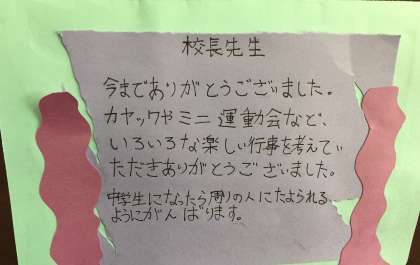 校長先生
今までありがとうございました。
カヤックやミニ運動会など、
いろいろな楽しい行事を考えてい
ただきありがとうございました。
中学生になったら周りの人にたよられる
ようにがんばります。